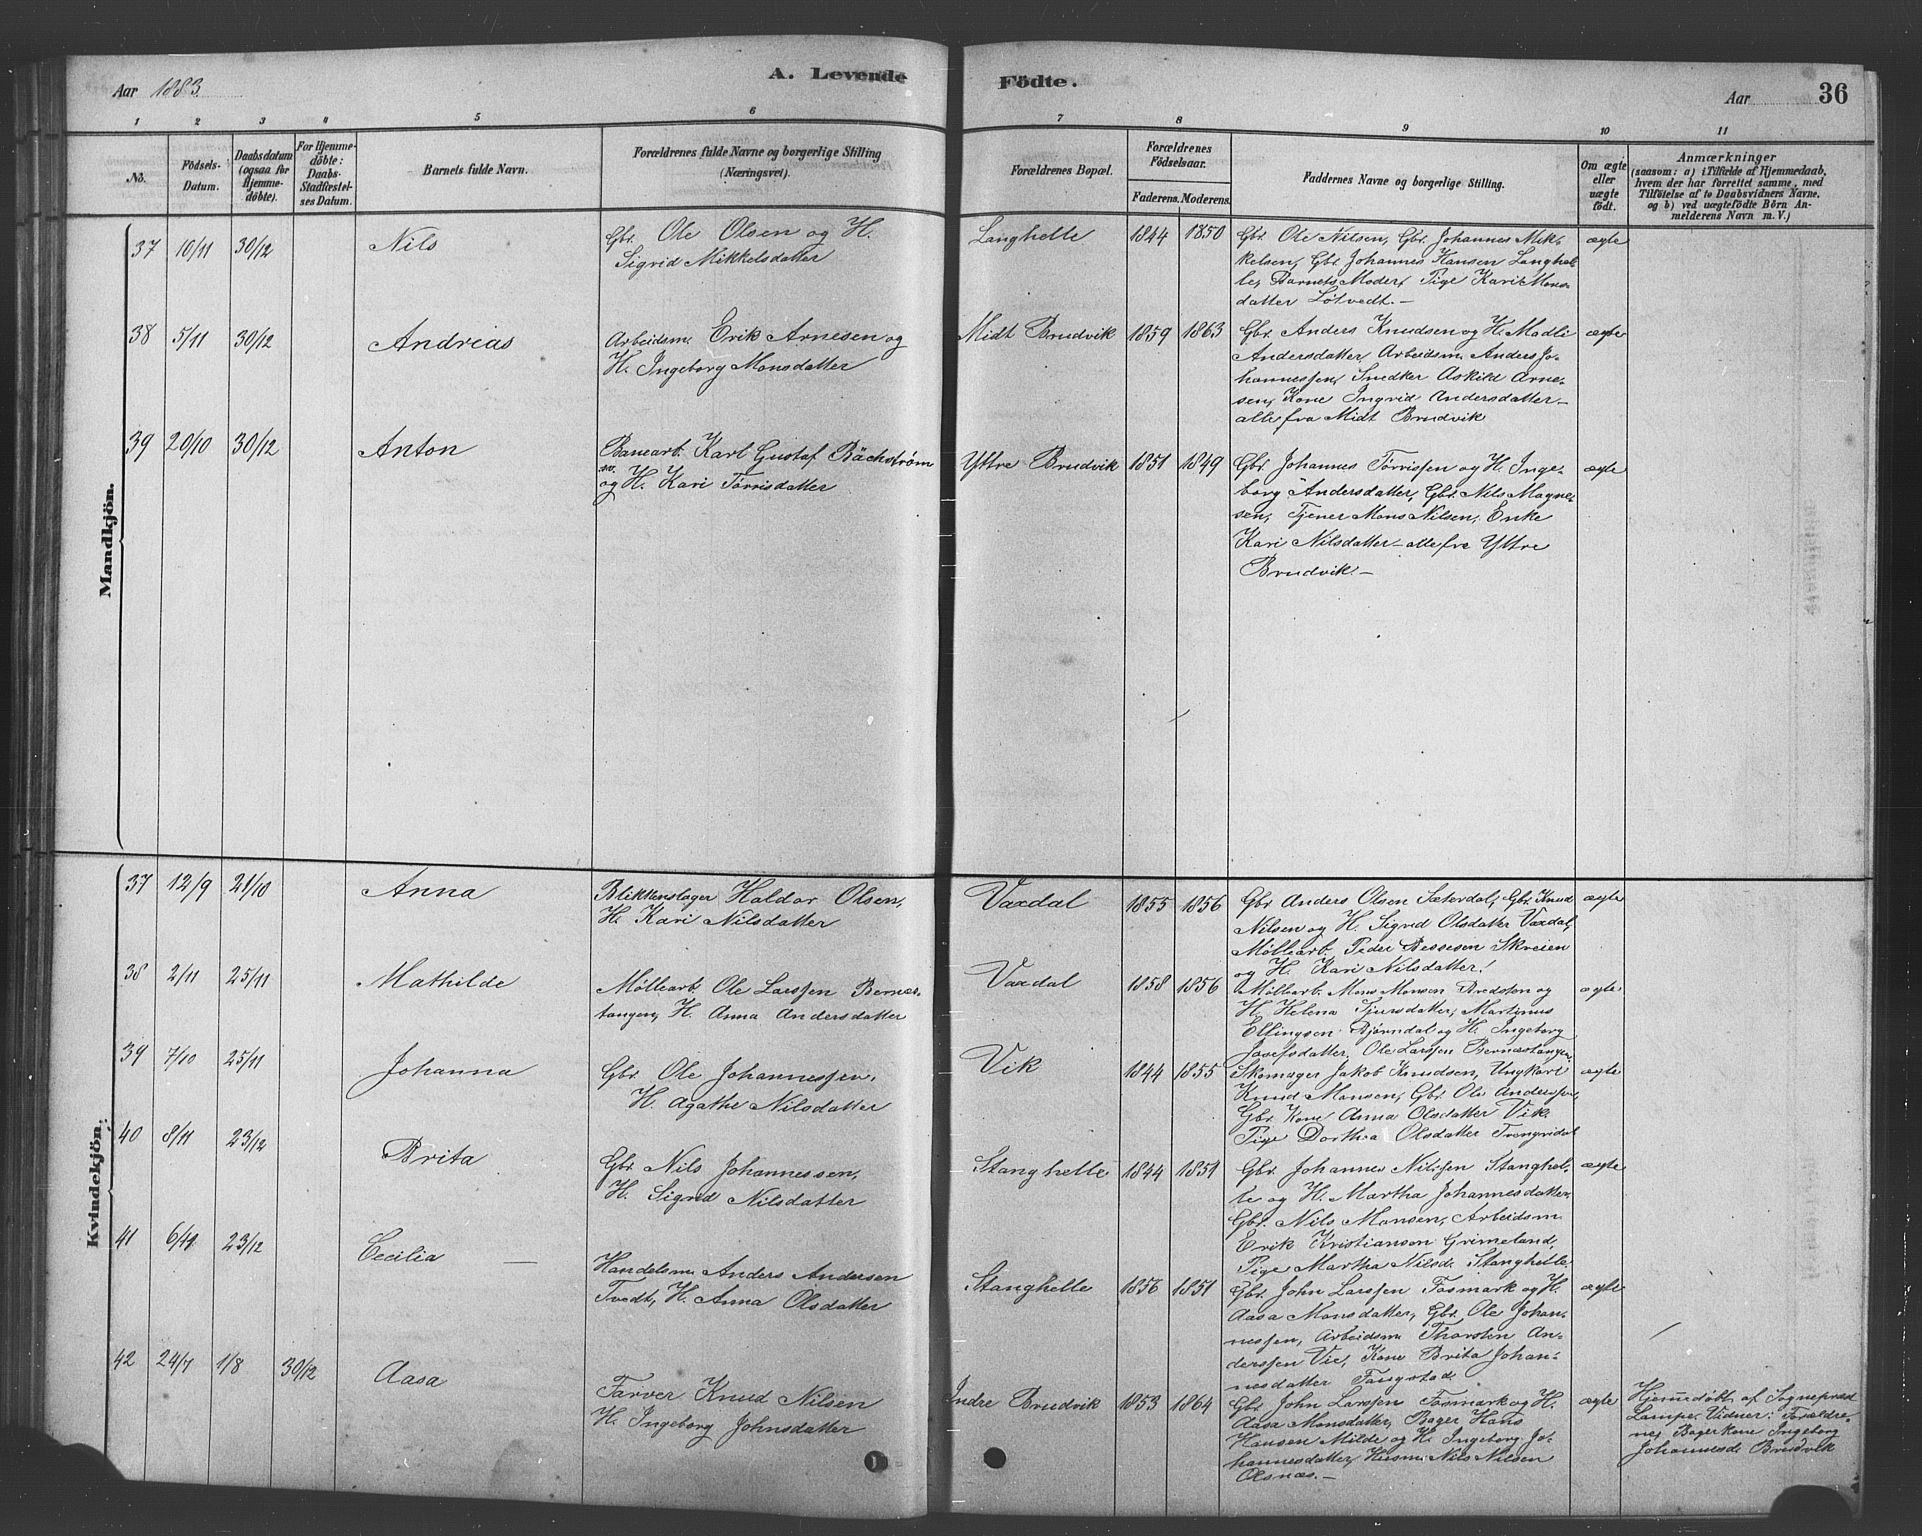 Aar 1883.
A. Levende
Födte.
Aar
36
1 2 3 4 5 6 7 8 9 10 11
No.
Födsels-
Datum.
Daabsdatum
(ogsaa for
Hjemme-
döbte).
For Hjemme-
döbte:
Daabs-
Stadfæstel-
ses Datum.
Barnets fulde Navn.
Forældrenes fulde Navne og borgerlige Stilling
(Næringsvei).
Forældrenes Bopæl.
Forældrenes
Födselsaar.
Faderens. Moderens.
Faddernes Navne og borgerlige Stilling.
Om ægte
eller
uægte
födt.
Anmærkninger
(saasom: a) i Tilfælde af Hjemmedaab,
hvem der har forrettet samme, med
Tilföielse af to Daabsvidners Navne,
og b) ved uægtefödte Börn An-
melderens Navn m. V.)
Mandkjön.
37 10/11 30/12 Nils
Gbr. Ole Olsen og H.
Sigrid Mikkelsdatter
Langhelle 1844 1850
Gbr. Ole Nilsen, Gbr. Johannes Mik-
kelsen, Gbr. Johannes Hansen Langhel-
le, Barnets Moder, Pige Kari Mons-
datter Løtvedt.—
ægte
38 5/11 30/12 Andreas
Arbeidsm. Erik Arnesen og
H. Ingeborg Monsdatter
Midt Brudvik 1859 1863
Gbr. Anders Knudsen og H. Madli
Andersdatter, Arbeidsm. Anders Jo-
hannessen, Snedker Askild Arne-
sen, Kone Ingrid Andersdatter—
alle fra Midt Brudvik
ægte
39 20/10 30/12 Anton
Banearb. Karl Gustaf Bächstrøm
og H. Kari Tørrisdatter
Yttre Brudvik 1851 1849
Gbr. Johannes Tørrissen og H. Inge-
borg Andersdatter, Gbr. Nils Magne-
sen, Tjener Mons Nilsen, Enke
Kari Nilsdatter—alle fra Yttre
Brudvik.—
ægte
Kvindekjön.
37 12/9 21/10 Anna
Blikkenslager Haldor Olsen,
H. Kari Nilsdatter
Vaxdal 1855 1856
Gbr. Anders Olsen Sæterdal, Gbr. Knud
Nilsen og H. Sigrid Olsdatter Vaxdal,
Møllearb. Peder Bessesen Skreien
og H. Kari Nilsdatter.
ægte
38 2/11 25/11 Mathilde
Møllearb. Ole Larssen Bernes-
tangen, H. Anna Andersdatter
Vaxdal 1858 1856
Møllearb. Mons Monsen Bredsten og
H. Helena Tjursdatter, Martinus
Ellingsen Bjørndal og H. Ingeborg
Josefsdatter, Ole Larssen Bernestangen
ægte
39 7/10 25/11 Johanna
Gbr. Ole Johannessen,
H. Agathe Nilsdatter
Vik 1844 1855
Skomager Jakob Knudsen, Ungkarl
Knud Monsen, Gbr. Ole Anderssen,
Gbr. Kone Anna Olsdatter Vik.
Pige Dorthea Olsdatter Trengridal
ægte
40 8/11 23/12 Brita
Gbr. Nils Johannessen,
H. Sigrid Nilsdatter
Stanghelle 1844 1851
Gbr. Johannes Nilssen Stanghel-
le og H. Martha Johannesdatter,
Gbr. Nils Monsen, Arbeidsm.
Erik Kristiansen Grimeland,
Pige Martha Nilsd. Stanghelle
ægte
41 6/11 23/12 Cecilia —
Handelsm. Anders Andersen
Tvedt, H. Anna Olsdatter
Stanghelle 1856 1851
Gbr. John Larssen Fosmark og H.
Aasa Monsdatter, Gbr. Ole Johan-
nessen, Arbeidsm. Thorsten An-
derssen Vie, Kone Brita Johan-
nesdatter Fangstad
ægte
42 24/7 1/8 30/12 Aasa
Farver Knud Nilsen
H. Ingeborg Johnsdatter
Indre Brudvik 1853 1864
Gbr. John Larssen Fosmark og H.
Aasa Monsdatter, Bager Hans
Hansen Milde og H. Ingeborg Jo-
hannesdatter, Husm. Nils Nilsen
Olsnæs.—
ægte
Hjemmedøbt af Sognepræst
Lampe. Vidner: Forældre-
ne, Bagerkone Ingeborg
Johannesd. Brudvik